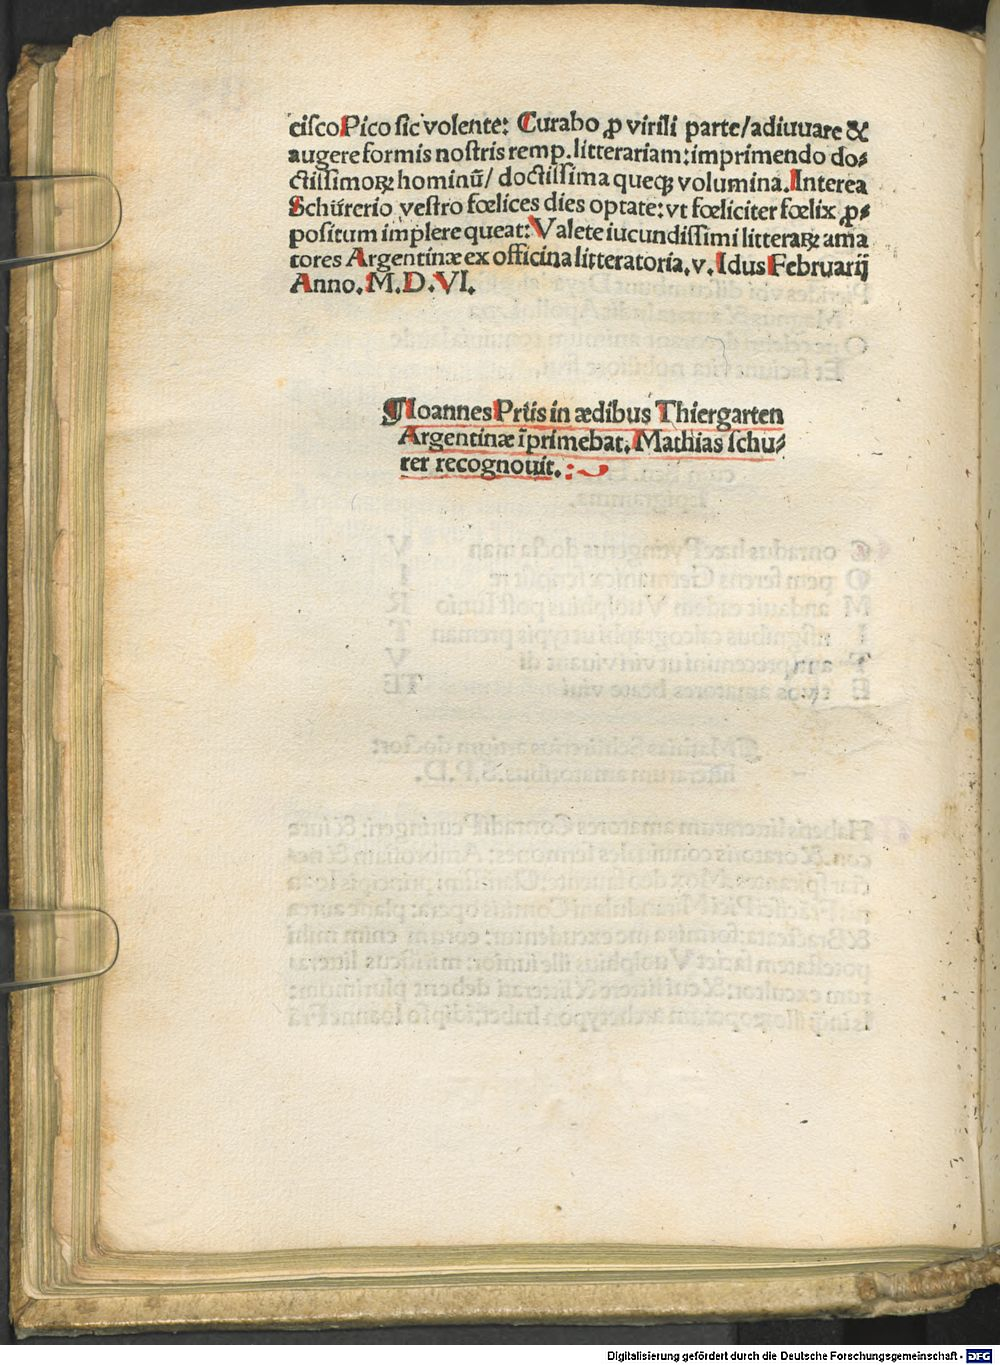 ciſco Pico ſic volente: Curabo ꝓ virili parte/adiuuare &
augere formis noſtris remp. litterariam: imprimendo do⸗
ctiſſimoꝝ hominū/ doctiſſima queqꝫ volumina. Interea
Schürerio veſtro fœlices dies optate: vt fœliciter fœlix ꝓ⸗
poſitum implere queat: Valete iucundiſſimi litteraꝝ ama
tores Argentinæ ex officina litteratoria. v. Idus Februarij
Anno. M. D. VI.
¶Ioannes Prüs in ædibus Thiergarten
Argentinæ īprimebat. Mathias ſchu⸗
rer recognouit.
Digitalisierung gefördert durch die Deutsche Forschungsgemeinschaft - DFG